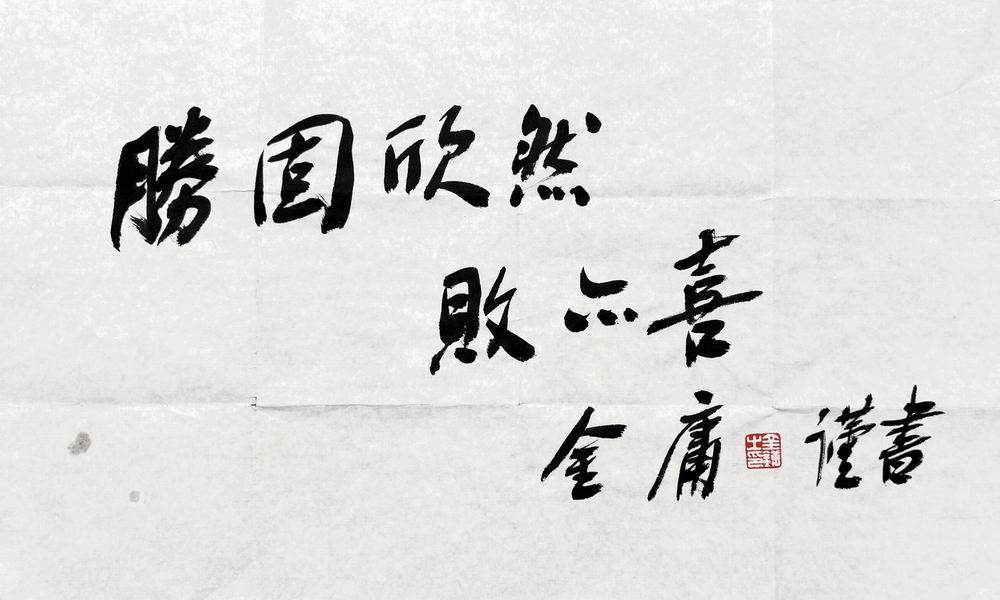 勝固欣然
敗亦喜
金庸 謹書